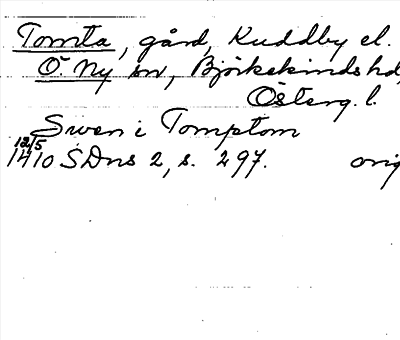 Tomta, gård, Kuddby el.
Ö. Ny sn, Björkekinds hd,
Österg. l.
Swen i Tomptom
12/5
1410 SDns 2, s. 297. orig